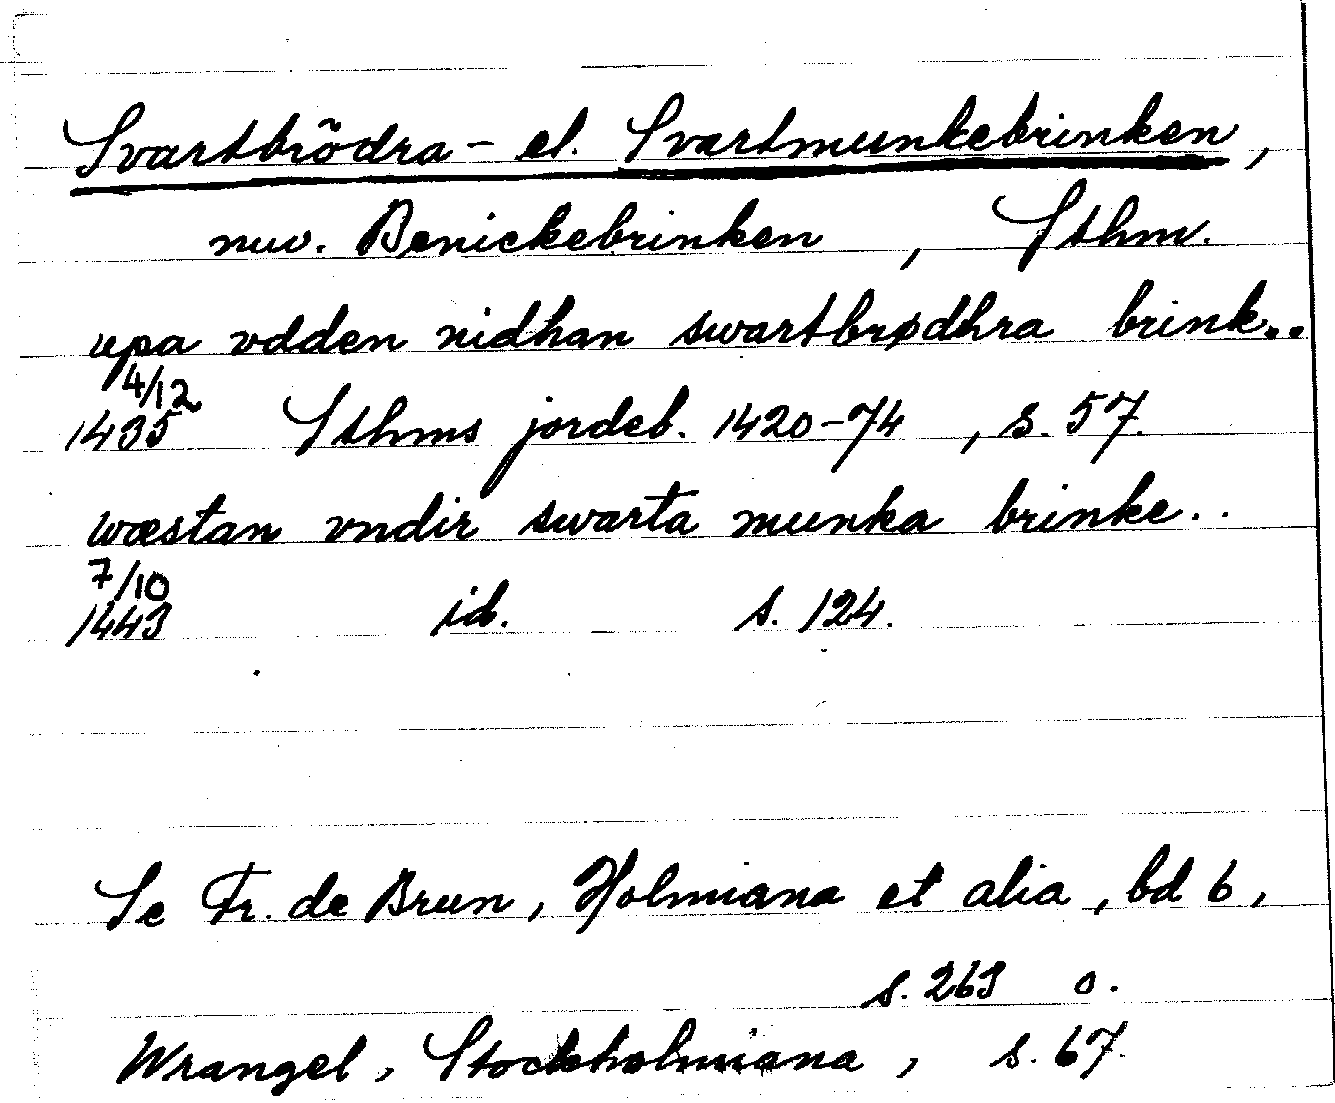 Svartbrödra- el. Svartmunkebrinken,
nuv. Benickebrinken, Sthm.
upa vdden nidhan swartbrødhra brink..
4/12
1435 Sthms jordeb. 1420-74, s. 57.
wæstan vndir swarta munka brinke..
7/10
1443 id. s. 124.
Se Fr. de Brun, Holmiana et alia, bd 6,
s. 263 o.
Wrangel, Stockholmiana, s. 67.